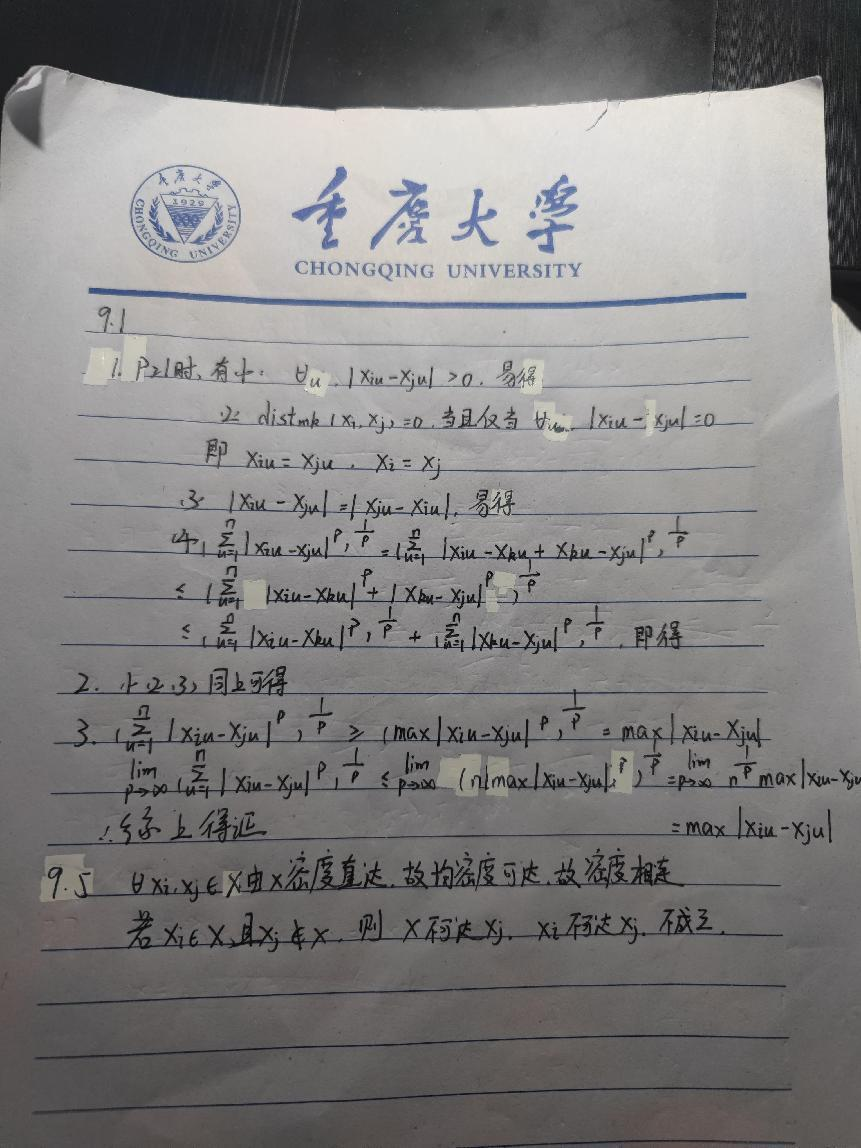 重庆大学
1929
CHONGQING UNIVERSITY
重庆大学
CHONGQING UNIVERSITY
9.1
1. P≥1时, 有 1. ∀u, |xiu-xju| >0. 易得
2. distmk(xi, xj)=0. 当且仅当 ∀u, |xiu-xju|=0
即 xiu = xju, xi = xj
3. |xiu-xju|=|xju-xiu|, 易得
4. (∑_{u=1}^{n} |xiu-xju|^p)^{1/p} = (∑_{u=1}^{n} |xiu-xku+xku-xju|^p)^{1/p}
≤ (∑_{u=1}^{n} |xiu-xku|^p + |xku-xju|^p)^{1/p}
≤ (∑_{u=1}^{n} |xiu-xku|^p)^{1/p} + (∑_{u=1}^{n} |xku-xju|^p)^{1/p}, 即得
2. 1, 2, 3, 同上可得
3. (∑_{u=1}^{n} |xiu-xju|^p)^{1/p} ≥ (max|xiu-xju|^p)^{1/p} = max|xiu-xju|
lim_{p→∞} (∑_{u=1}^{n} |xiu-xju|^p)^{1/p} ≤ lim_{p→∞} (n|max|xiu-xju|^p)^{1/p} = lim_{p→∞} n^{1/p} max|xiu-xju
∴综上得证 = max|xiu-xju|
9.5 ∀xi, xj∈X, 由x密度直达, 故均密度可达, 故密度相连
若xi∈X, 且xj∉X, 则 x不可达xj, xi不可达xj, 不成立.